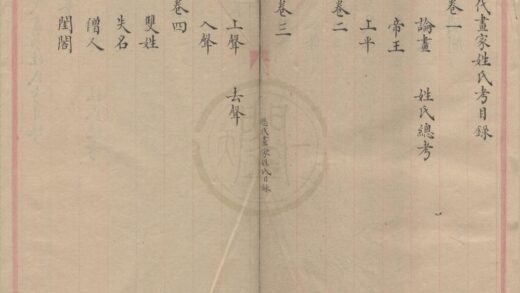 代畫家姓氏考目錄
卷一
論畫　姓氏總考
帝王
上平
卷二
卷三
上聲　去聲
入聲
卷四
雙姓
失名
僧人
閨閣
歷代畫家姓氏目錄